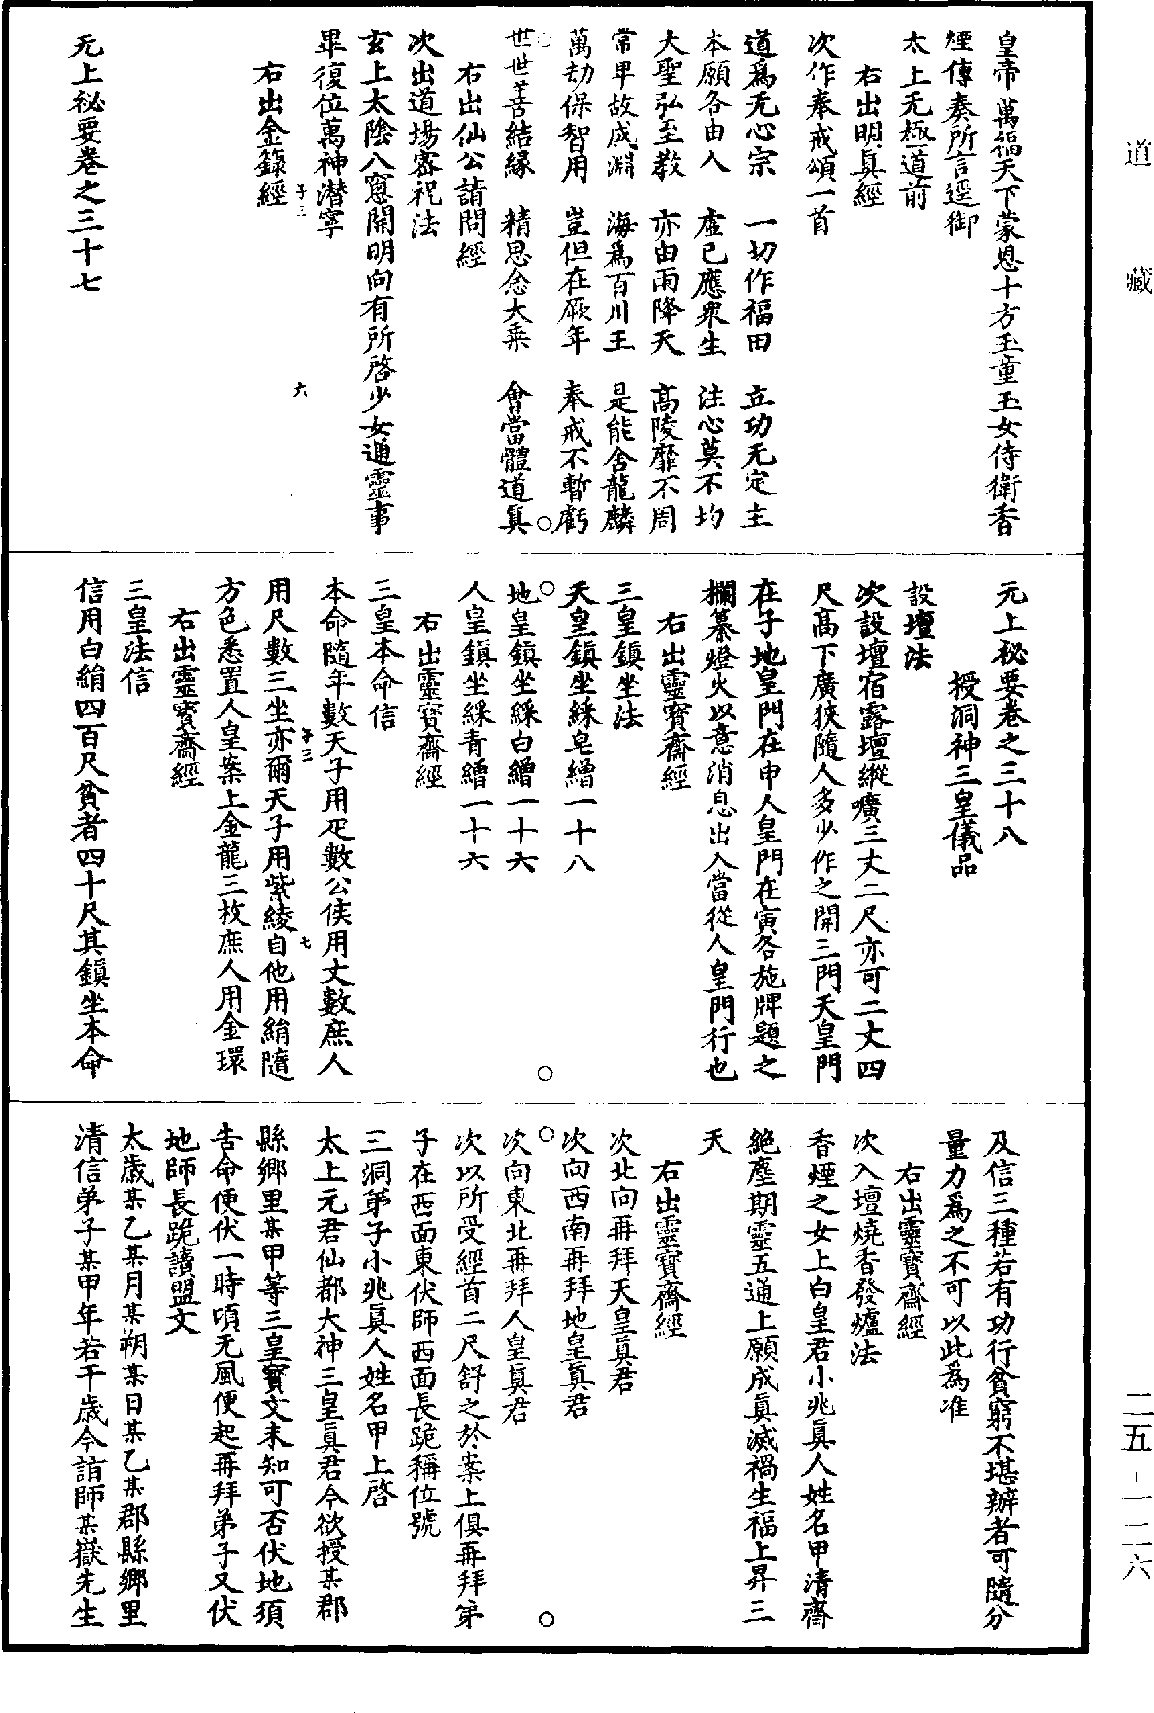 道藏
二五-一二六
皇帝萬福天下蒙恩十方玉童玉女侍衛香
煙傳奏所言逕御
太上无極道前
右出明真經
次作奉戒頌一首
道爲无心宗　一切作福田　立功无定主
本願各由人　虛己應衆生　注心莫不均
大聖弘至教　亦由雨降天　高陵靡不周
常卑故成淵　海爲百川王　是能含龍麟
萬劫保智用　豈但在厥年　奉戒不暫虧
世世善結緣　精思念大乘　會當體道真
右出仙公請問經
次出道場密祝法
玄上太陰八窻開明向有所啓少女通靈事
畢復位萬神潛寧
右出金籙經
子三
六
无上祕要卷之三十七
无上祕要卷之三十八
授洞神三皇儀品
設壇法
次設壇宿露壇縱曠三丈二尺亦可二丈四
尺高下廣狹隨人多少作之開三門天皇門
在子地皇門在申人皇門在寅各施牌題之
欄纂燈火以意消息出入當從人皇門行也
右出靈寶齋經
三皇鎮坐法
天皇鎮坐綵皂繒一十八
地皇鎮坐綵白繒一十六
人皇鎮坐綵青繒一十六
右出靈寶齋經
三皇本命信
本命隨年數天子用疋數公侯用丈數庶人
用尺數三坐亦爾天子用紫綾自他用絹隨
子三
七
方色悉置人皇案上金龍三枚庶人用金環
右出靈寶齋經
三皇法信
信用白絹四百尺貧者四十尺其鎮坐本命
及信三種若有功行貧窮不堪辦者可隨分
量力爲之不可以此爲准
右出靈寶齋經
次入壇燒香發爐法
香煙之女上白皇君小兆真人姓名甲清齋
絶塵期靈五通上願成真滅禍生福上昇三
天
右出靈寶齋經
次北向再拜天皇真君
次向西南再拜地皇真君
次向東北再拜人皇真君
次以所受經首二尺舒之於案上俱再拜弟
子在西面東伏師西面長跪稱位號
三洞弟子小兆真人姓名甲上啓
太上元君仙都大神三皇真君今欲授某郡
縣鄉里某甲等三皇寶文未知可否伏地須
告命便伏一時頃无風便起再拜弟子又伏
地師長跪讀盟文
太歲某乙某月某朔某日某乙某郡縣鄉里
清信弟子某甲年若干歲今詣師某嶽先生